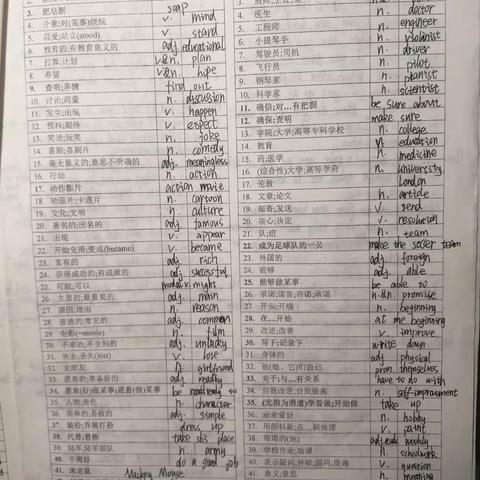 3. 肥皂剧 soap
4. 介意;对(某事)烦恼 v. mind
5. 忍受;站立(stood) v. stand
6. 教育的;有教育意义的 adj. educational
7. 打算;计划 v.&n. plan
8. 希望 v.&n. hope
9. 查明;弄情 find out
10. 讨论;商量 n. discussion
11. 发生;出现 v. happen
12. 预料;期待 v. expect
13. 笑话;玩笑 n. joke
14. 喜剧;喜剧片 n. comedy
15. 毫无意义的;意思不明确的 adj. meaningless
16. 行动 n. action
17. 动作影片 action movie
18. 动画片;卡通片 n. cartoon
19. 文化;文明 n. culture
20. 著名的;出名的 adj. famous
21. 出现 v. appear
22. 开始变得;变成(became) v. became
23. 富有的 adj. rich
24. 获得成功的;有成就的 adj. successful
25. 可能;可以 modal v. might
26. 主要的;最重要的 adj. main
27. 原因;理由 n. reason
28. 普通的;常见的 adj. common
29. 电影(=movie) n. film
30. 不幸的;不吉利的 adj. unlucky
31. 失去;丢失(lost) v. lose
32. 女朋友 n. girlfriend
33. 愿意的;准备好的 adj. ready
34. 愿意(好)做某事;愿意(做)某事 be ready to
35. 人物;角色 n. character
36. 简单的;易做的 adj. simple
37. 装扮;乔装打扮 dress up
38. 代替;替换 take sb's place
39. 陆军;陆军部队 n. army
40. 干得好 do a good job
41. 米老鼠 Mickey Mouse
4. 医生 n. doctor
5. 工程师 n. engineer
6. 小提琴手 n. violinist
7. 驾驶员;司机 n. driver
8. 飞行员 n. pilot
9. 钢琴家 n. pianist
10. 科学家 n. scientist
11. 确信;对…有把握 be sure about
12. 确保;查明 make sure
13. 学院;大学;高等专科学校 n. college
14. 教育 n. education
15. 药;医学 n. medicine
16. (综合性)大学;高等学府 n. university
17. 伦敦 London
18. 文章;论文 n. article
19. 邮寄;发送 v. send
20. 决心;决定 v. resolution
21. 队;组 n. team
22. 成为足球队的一员 make the soccer team
23. 外国的 adj. foreign
24. 能够 adj. able
25. 能够做某事 be able to
26. 承诺;诺言;许诺;承诺 n.&v. promise
27. 开头;开端 n. beginning
28. 在…开始 at the beginning
29. 改进;改善 v. improve
30. 写下;记录下 write down
31. 身体的 adj. physical
32. 他(她、它)们自己 pron. themselves
33. 关于;与…有关系 have to do with
34. 自我改进;自我提高 n. self-improvement
35. (尤指为消遣)学着做;开始做 take up
36. 业余爱好 n. hobby
37. 用颜料画;在…刷油漆 v. paint
38. 每周的(地) weekly
39. 学校作业;功课 n. schoolwork
40. 表示疑问;怀疑;提问;质询 v. question
41. 意义;意思 n. meaning